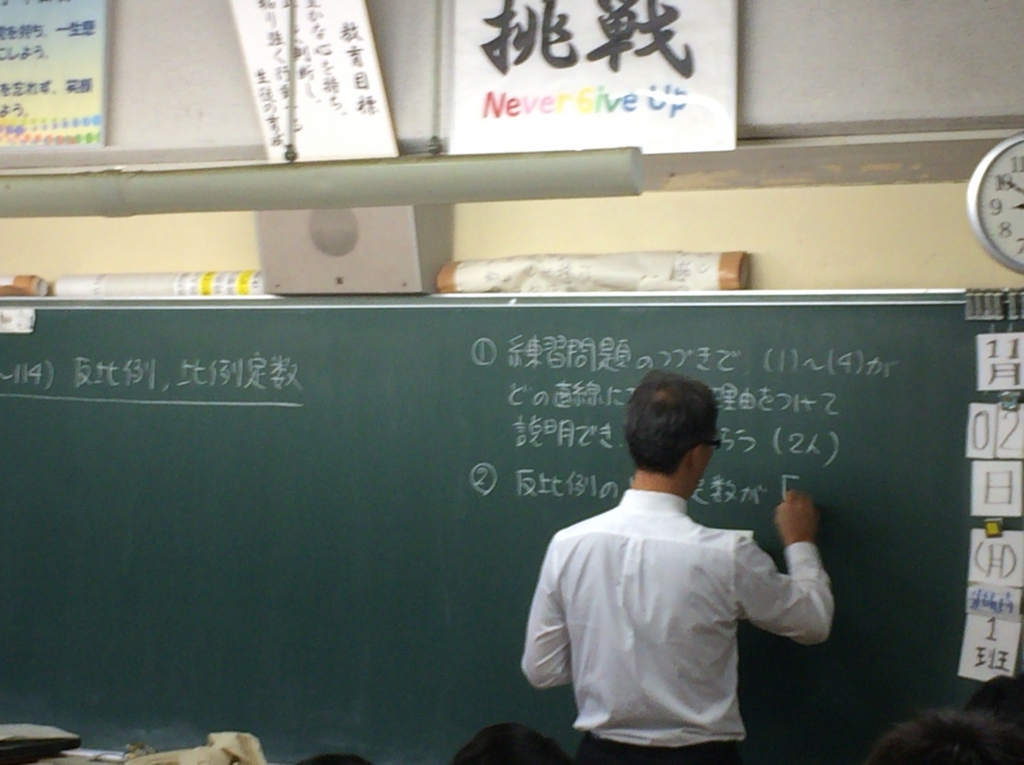 を持ち、一生懸
にしよう。
を忘れず、笑顔
よう。
教育目標
豊かな心を持ち、
判断し、
粘り強く行
生徒の育成
挑戦
Never Give Up
11
10
9
8
7
～114) 反比例, 比例定数
① 練習問題のつづきで、(1)～(4)が
どの直線に 理由をつけて
説明でき (2人)
② 反比例の 定数が「
11
月
02
日
(月)
1
班